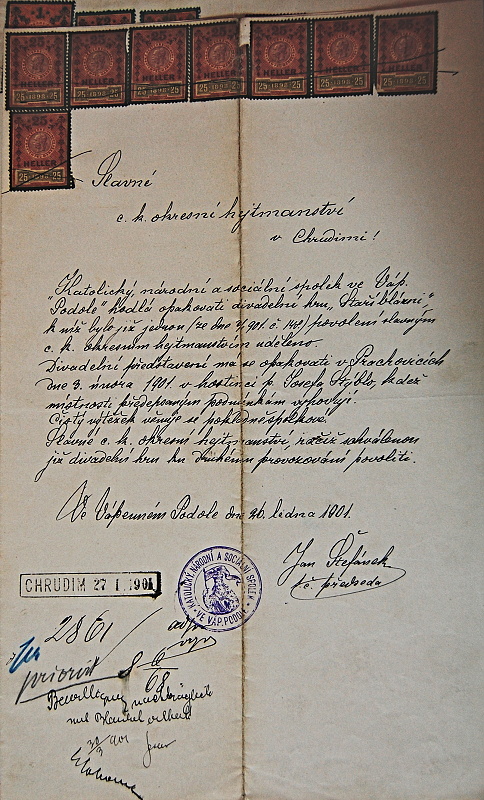 1
HELLER HELLER HELLER HELLER HELLER HELLER HELLER
25 1898 25 25 1898 25 25 1898 25 25 1898 25 25 1898 25 25 1898 25 25 1898 25
25
HELLER
25 1898 25
Slavné
c. k. okresní hejtmanství
v Chrudimi!
Katolický, národní a sociální spolek ve Váp.
Podole hodlá opakovati divadelní hru "Staří blázni",
k níž bylo již jednou (ze dne 901. č. 148) povolení slavným
c. k. okresním hejtmanstvím uděleno.
Divadelní představení má se opakovati v Prachovicích
dne 3. února 1901 v hostinci p. Josefa, kdež
místnosti předepsaným podmínkám vyhovují.
Čistý výtěžek věnuje se pokladně spolkové.
Slavné c. k. okresní hejtmanství, račiž schválenou
již divadelní hru ku druhému provozování povoliti.
Ve Vápenném Podole dne 26. ledna 1901.
Jan Štefánek
t. č. předseda
CHRUDIM 27 I. 1901
KATOLICKÝ, NÁRODNÍ A SOCIÁLNÍ SPOLEK
VE VÁP. PODOLE
2861
priorit
8
68